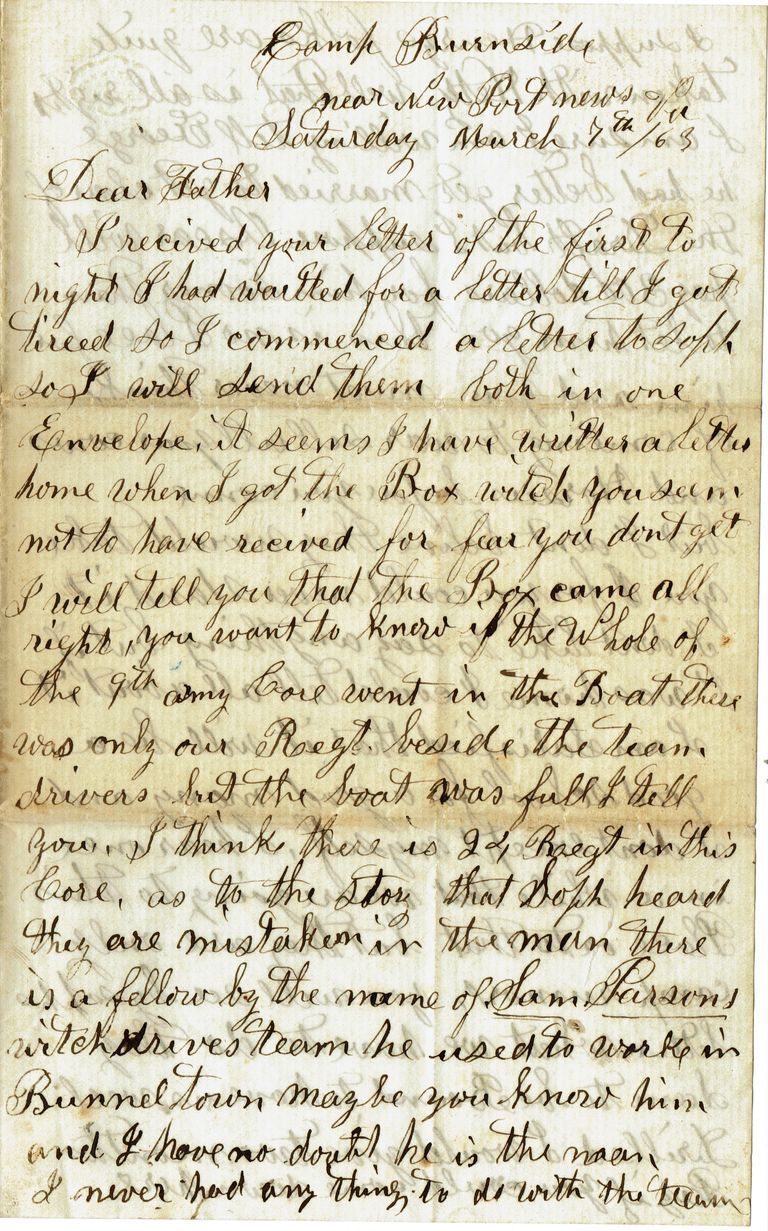 Camp Burnside
near New Port news Va
Saturday March 7th /63
Dear Father
I recived your letter of the first to
night I had waitted for a letter till I got
tireed so I commenced a letter to Soph
so I will send them both in one
Envelope, it seems I have writter a letter
home when I got the Box witch you seem
not to have recived for fear you dont get
I will tell you that the Box came all
right, you want to know if the Whole of
the 9th amy Core went in the Boat there
was only our Regt. beside the team
drivers but the boat was full I tell
you. I think there is 24 Regt in this
Core, as to the Story that Soph heard
they are mistaken in the man there
is a fellow by the name of Sam Parsons
witch drives team he used to worke in
Bunnel town maybe you know him
and I have no doubt he is the man
I never had any thing to do with the team